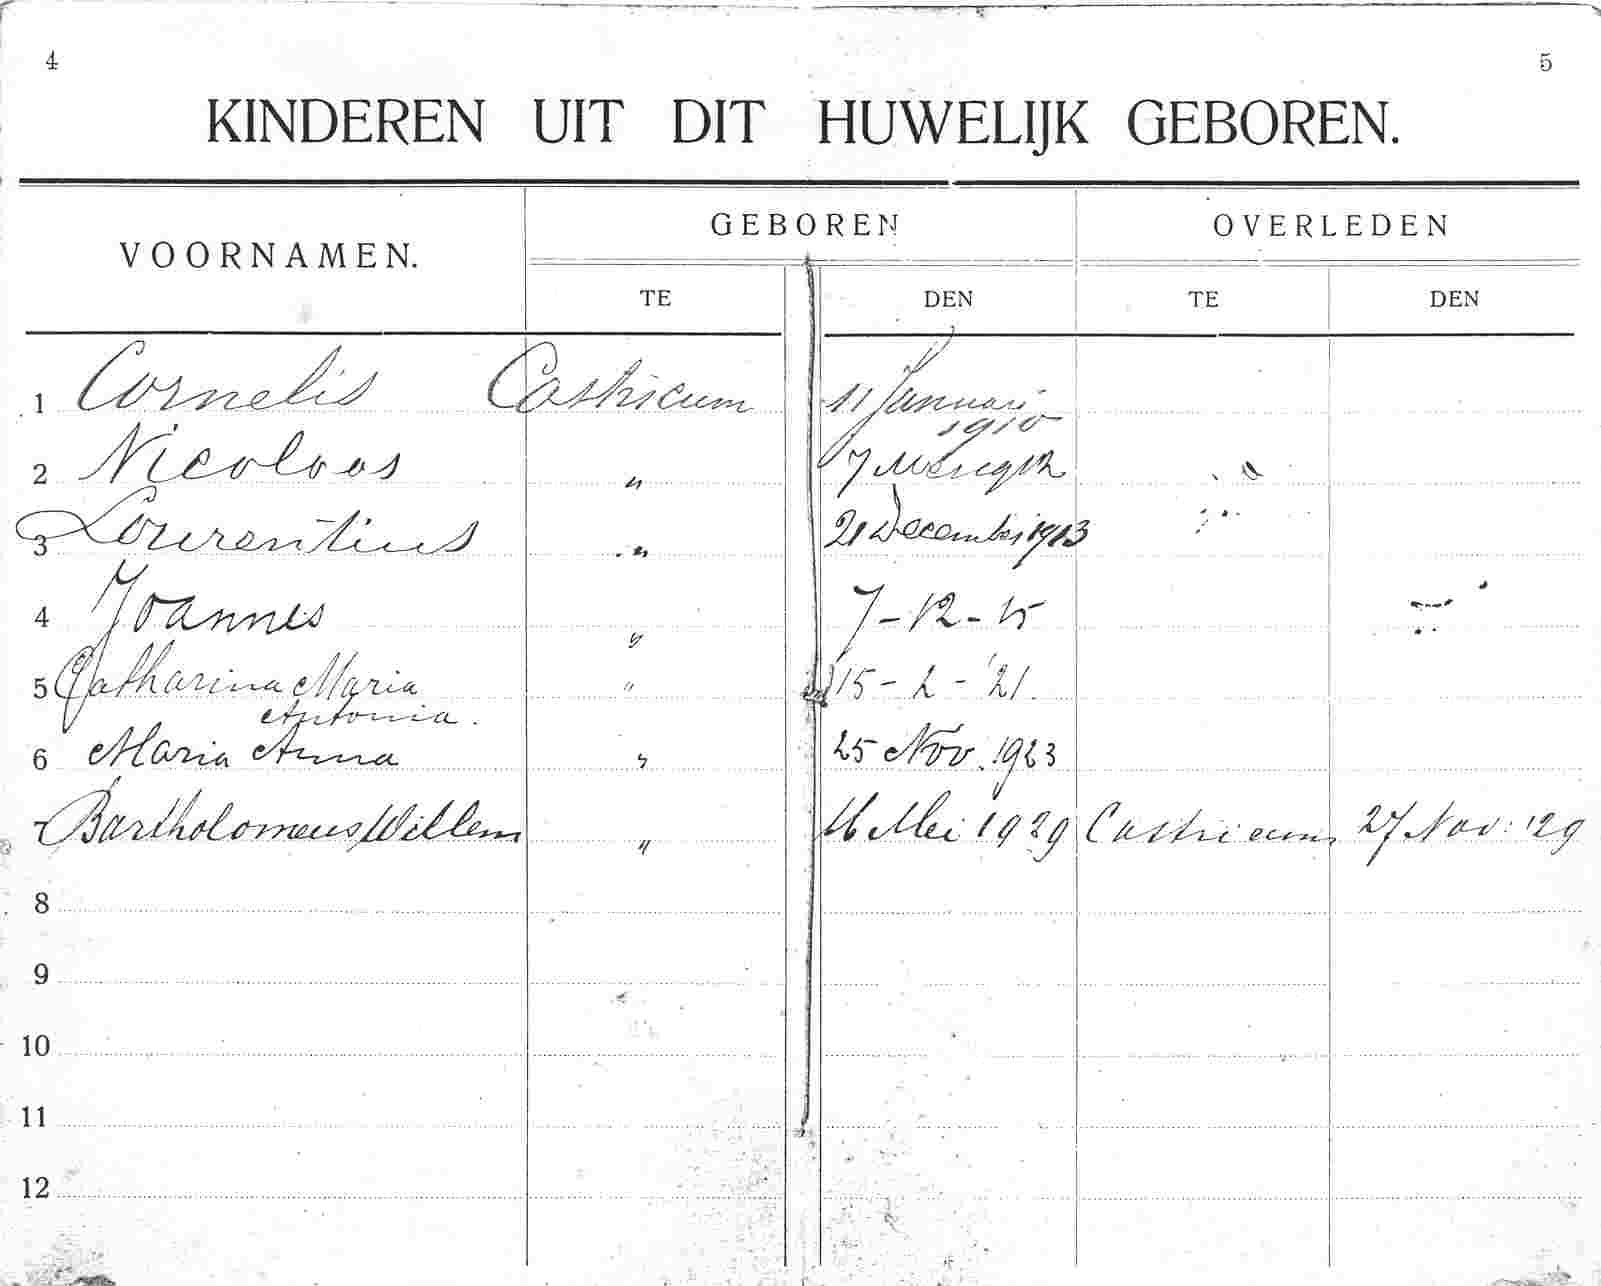 4 5
KINDEREN UIT DIT HUWELIJK GEBOREN.
VOORNAMEN. GEBOREN OVERLEDEN
TE DEN TE DEN
1 Cornelis Castricum 11 Januari
1910
2 Nicolaas " 7
3 Laurentius " 21 December 1913
4 Joannes " 7-12-15
5 Catharina Maria " 15-2-'21.
Antonia.
6 Maria Anna " 25 Nov. 1923
7 Bartholomeus Willem " 16 Mei 1929 Castricum 27 Nov. '29
8
9
10
11
12